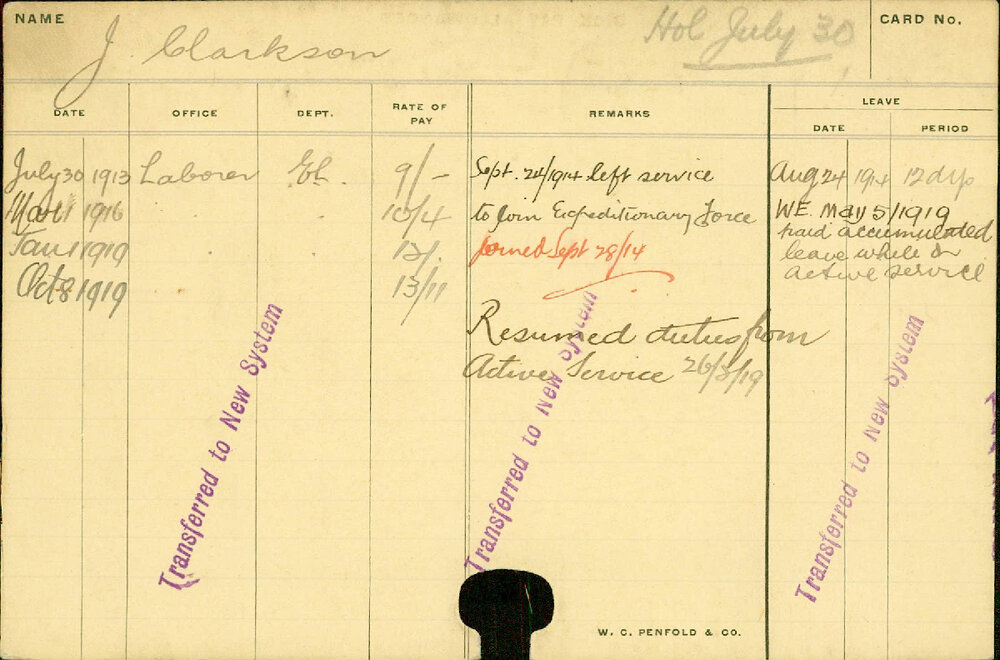 NAME
J. Clarkson
Hol July 30
CARD No.
DATE
OFFICE
DEPT.
RATE OF PAY
REMARKS
LEAVE
DATE
PERIOD
July 30 1913 Laborer 9/-
Mar 1 1916 10/4
Jan 1 1919 12/.
Oct 8 1919 13/11
Sept. 24/1914 left service
to join Expeditionary Force
Joined Sept 28/14
Resumed duties from
Active Service 26/3/19
Aug 24 1914 12 dys
W.E. May 5/1919
paid accumulated
leave while on
active service
Transferred to New System
Transferred to New System
Transferred to New System
W. C. PENFOLD & CO.